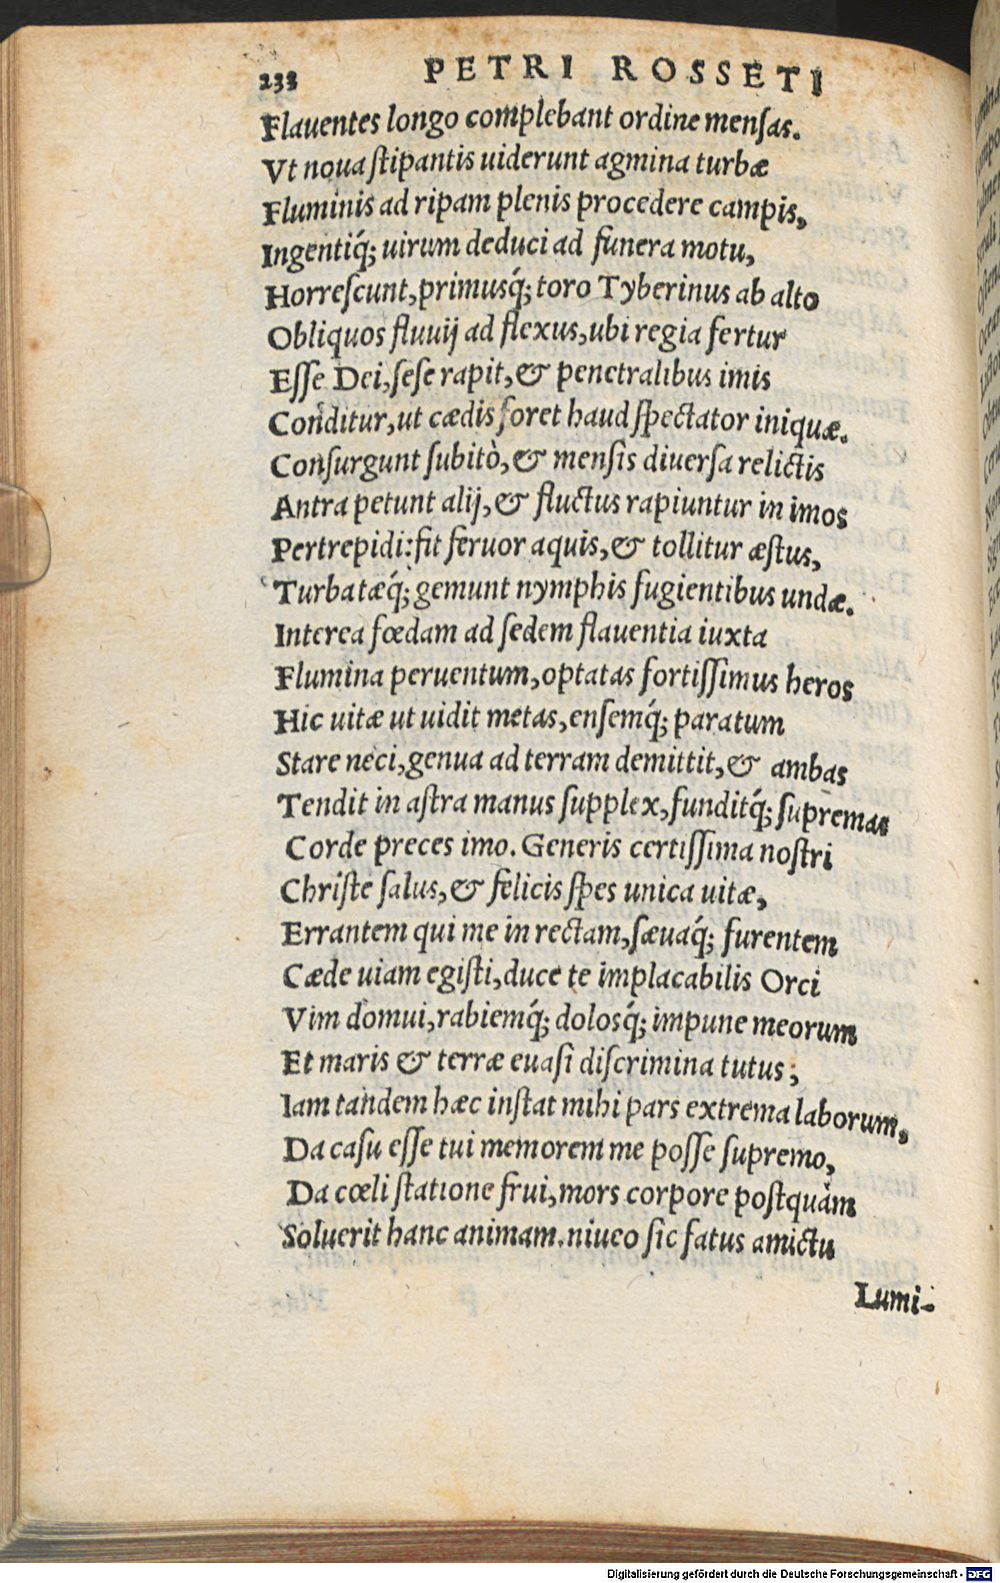 233 PETRI ROSSETI
Flauentes longo complebant ordine menſas.
Vt noua ſtipantis uiderunt agmina turbæ
Fluminis ad ripam plenis procedere campis,
Ingentiq́; uirum deduci ad funera motu,
Horreſcunt, primusq́; toro Tyberinus ab alto
Obliquos fluuij ad flexus, ubi regia fertur
Eſſe Dei, ſeſe rapit, & penetralibus imis
Conditur, ut cædis foret haud ſpectator iniquæ.
Conſurgunt ſubitò, & menſis diuerſa relictis
Antra petunt alij, & fluctus rapiuntur in imos
Pertrepidi: fit feruor aquis, & tollitur æſtus,
Turbatæq́; gemunt nymphis fugientibus undæ.
Interea fœdam ad ſedem flauentia iuxta
Flumina peruentum, optatas fortiſſimus heros
Hic uitæ ut uidit metas, enſemq́; paratum
Stare neci, genua ad terram demittit, & ambas
Tendit in aſtra manus ſupplex, funditq́; ſupremas
Corde preces imo. Generis certiſſima noſtri
Chriſte ſalus, & felicis ſpes unica uitæ,
Errantem qui me in rectam, ſæuaq́; furentem
Cæde uiam egiſti, duce te implacabilis Orci
Vim domui, rabiemq́; dolosq́; impune meorum
Et maris & terræ euaſi diſcrimina tutus;
Iam tandem hæc inſtat mihi pars extrema laborum,
Da caſu eſſe tui memorem me poſſe ſupremo,
Da cœli ſtatione frui, mors corpore poſtquàm
Soluerit hanc animam. niueo ſic fatus amictu
Lumi-
Digitalisierung gefördert durch die Deutsche Forschungsgemeinschaft - DFG